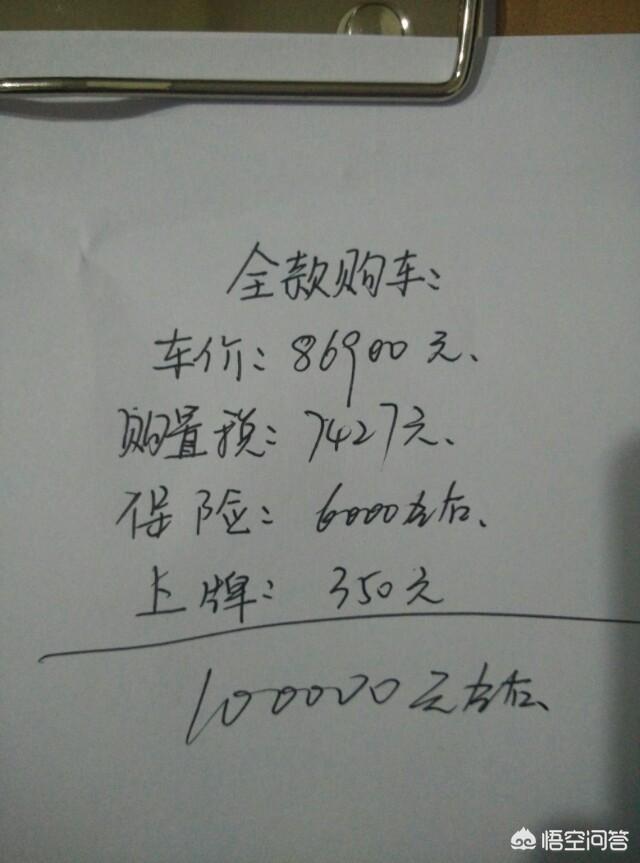 全款购车:
车价:86900元、
购置税:7427元、
保险:6000左右、
上牌:350元
100000元左右、
悟空问答